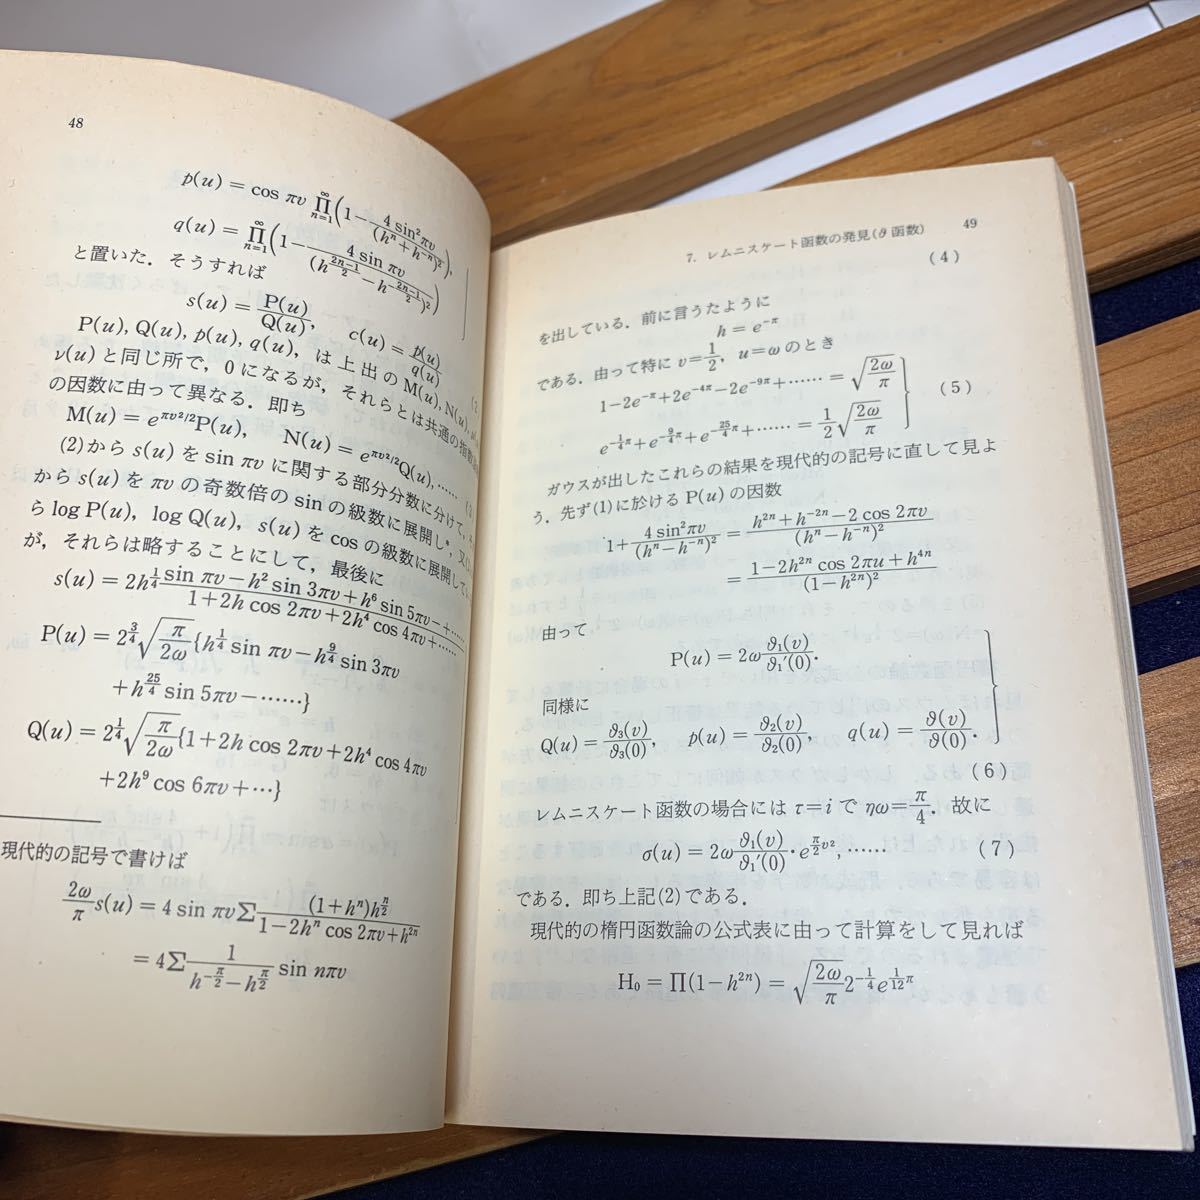 48
p(u) = cos πv ∏_{n=1}^{∞}(1 − 4 sin²πv/(hⁿ+h⁻ⁿ)²),
q(u) = ∏_{n=1}^{∞}(1 − 4 sin πv/(h^{(2n−1)/2} − h^{−(2n−1)/2})²)
と置いた．そうすれば
s(u) = P(u)/Q(u), c(u) = p(u)/q(u)
P(u), Q(u), p(u), q(u), は上出の M(u), N(u),
ν(u) と同じ所で，0 になるが，それらとは共通の指数
の因数に由って異なる．即ち
M(u) = e^{πv²/2}P(u), N(u) = e^{πv²/2}Q(u), ……
(2)から s(u) を sin πv に関する部分分数に分けて，
から s(u) を πv の奇数倍の sin の級数に展開し，又
ら log P(u), log Q(u), s(u) を cos の級数に展開して
が，それらは略することにして，最後に
s(u) = 2h^{1/4} (sin πv − h² sin 3πv + h⁶ sin 5πv − ……)/(1 + 2h cos 2πv + 2h⁴ cos 4πv + ……)
P(u) = 2^{3/4}√(π/2ω){h^{1/4} sin πv − h^{9/4} sin 3πv
+ h^{25/4} sin 5πv − ……}
Q(u) = 2^{1/4}√(π/2ω){1 + 2h cos 2πv + 2h⁴ cos 4πv
+ 2h⁹ cos 6πv + …}
現代的の記号で書けば
(2ω/π) s(u) = 4 sin πv Σ (1+hⁿ)h^{n/2}/(1−2hⁿ cos 2πv+h^{2n})
= 4Σ 1/(h^{−n/2} − h^{n/2}) sin nπv
7. レムニスケート函数の発見(ϑ 函数) 49
(4)
を出している．前に言うたように
h = e^{−π}
である．由って特に v=1/2, u=ω のとき
1−2e^{−π}+2e^{−4π}−2e^{−9π}+…… = √(2ω/π)
(5)
e^{−(1/4)π}+e^{−(9/4)π}+e^{−(25/4)π}+…… = (1/2)√(2ω/π)
ガウスが出したこれらの結果を現代的の記号に直して見よ
う．先ず(1)に於ける P(u) の因数
1+4 sin²πv/(hⁿ−h⁻ⁿ)² = (h^{2n}+h^{−2n}−2 cos 2πv)/(hⁿ−h⁻ⁿ)²
= (1−2h^{2n} cos 2πu+h^{4n})/(1−h^{2n})²
由って
P(u) = 2ω ϑ₁(v)/ϑ₁′(0).
同様に
Q(u) = ϑ₃(v)/ϑ₃(0), p(u) = ϑ₂(v)/ϑ₂(0), q(u) = ϑ(v)/ϑ(0).
(6)
レムニスケート函数の場合には τ=i で ηω=π/4. 故に
σ(u) = 2ω ϑ₁(v)/ϑ₁′(0)·e^{(π/2)v²}, …… (7)
である．即ち上記(2)である．
現代的の楕円函数論の公式表に由って計算をして見れば
H₀ = ∏(1−h^{2n}) = √(2ω/π) 2^{−1/4} e^{(1/12)π}